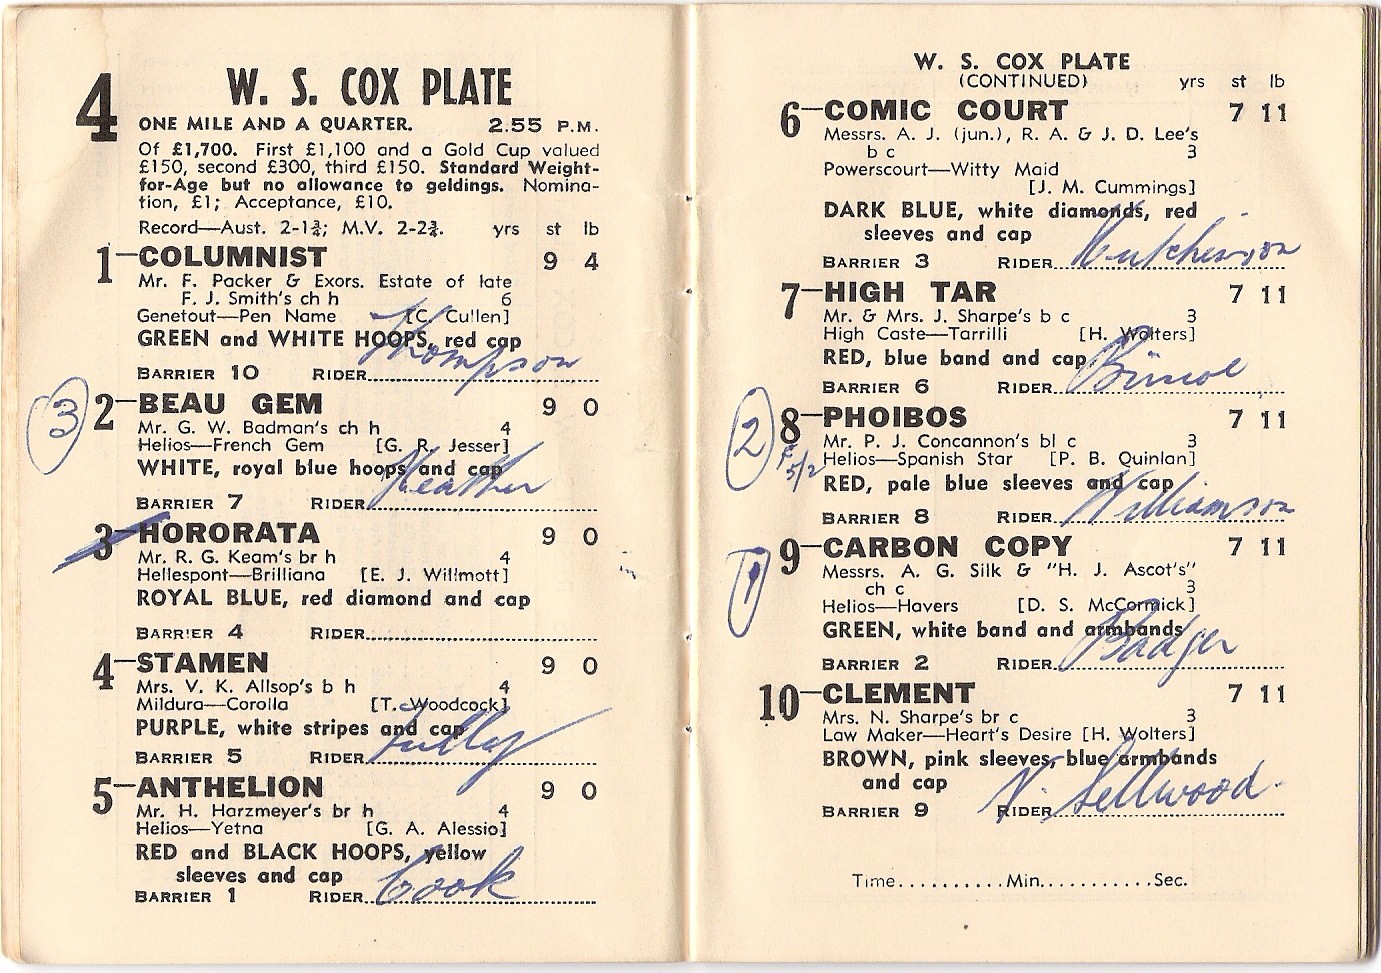 4 W. S. COX PLATE
ONE MILE AND A QUARTER. 2.55 P.M.
Of £1,700. First £1,100 and a Gold Cup valued
£150, second £300, third £150. Standard Weight-
for-Age but no allowance to geldings. Nomina-
tion, £1; Acceptance, £10.
Record—Aust. 2-1¾; M.V. 2-2¾. yrs st lb
1—COLUMNIST 9 4
Mr. F. Packer & Exors. Estate of late
F. J. Smith's ch h 6
Genetout—Pen Name [C. Cullen]
GREEN and WHITE HOOPS, red cap
BARRIER 10 RIDER Thompson
3 2—BEAU GEM 9 0
Mr. G. W. Badman's ch h 4
Helios—French Gem [G. R. Jesser]
WHITE, royal blue hoops and cap
BARRIER 7 RIDER Heather
3—HORORATA 9 0
Mr. R. G. Keam's br h 4
Hellespont—Brilliana [E. J. Willmott]
ROYAL BLUE, red diamond and cap
BARRIER 4 RIDER
4—STAMEN 9 0
Mrs. V. K. Allsop's b h 4
Mildura—Corolla [T. Woodcock]
PURPLE, white stripes and cap
BARRIER 5 RIDER Tully
5—ANTHELION 9 0
Mr. H. Harzmeyer's br h 4
Helios—Yetna [G. A. Alessio]
RED and BLACK HOOPS, yellow
sleeves and cap
BARRIER 1 RIDER Cook
W. S. COX PLATE
(CONTINUED) yrs st lb
6—COMIC COURT 7 11
Messrs. A. J. (jun.), R. A. & J. D. Lee's
b c 3
Powerscourt—Witty Maid
[J. M. Cummings]
DARK BLUE, white diamonds, red
sleeves and cap
BARRIER 3 RIDER Hutchinson
7—HIGH TAR 7 11
Mr. & Mrs. J. Sharpe's b c 3
High Caste—Tarrilli [H. Wolters]
RED, blue band and cap
BARRIER 6 RIDER
2 8—PHOIBOS 7 11
Mr. P. J. Concannon's bl c 3
F 5/2 Helios—Spanish Star [P. B. Quinlan]
RED, pale blue sleeves and cap
BARRIER 8 RIDER Williamson
1 9—CARBON COPY 7 11
Messrs. A. G. Silk & "H. J. Ascot's"
ch c 3
Helios—Havers [D. S. McCormick]
GREEN, white band and armbands
BARRIER 2 RIDER Badger
10—CLEMENT 7 11
Mrs. N. Sharpe's br c 3
Law Maker—Heart's Desire [H. Wolters]
BROWN, pink sleeves, blue armbands
and cap
BARRIER 9 RIDER N. Sellwood
Time..........Min...........Sec.